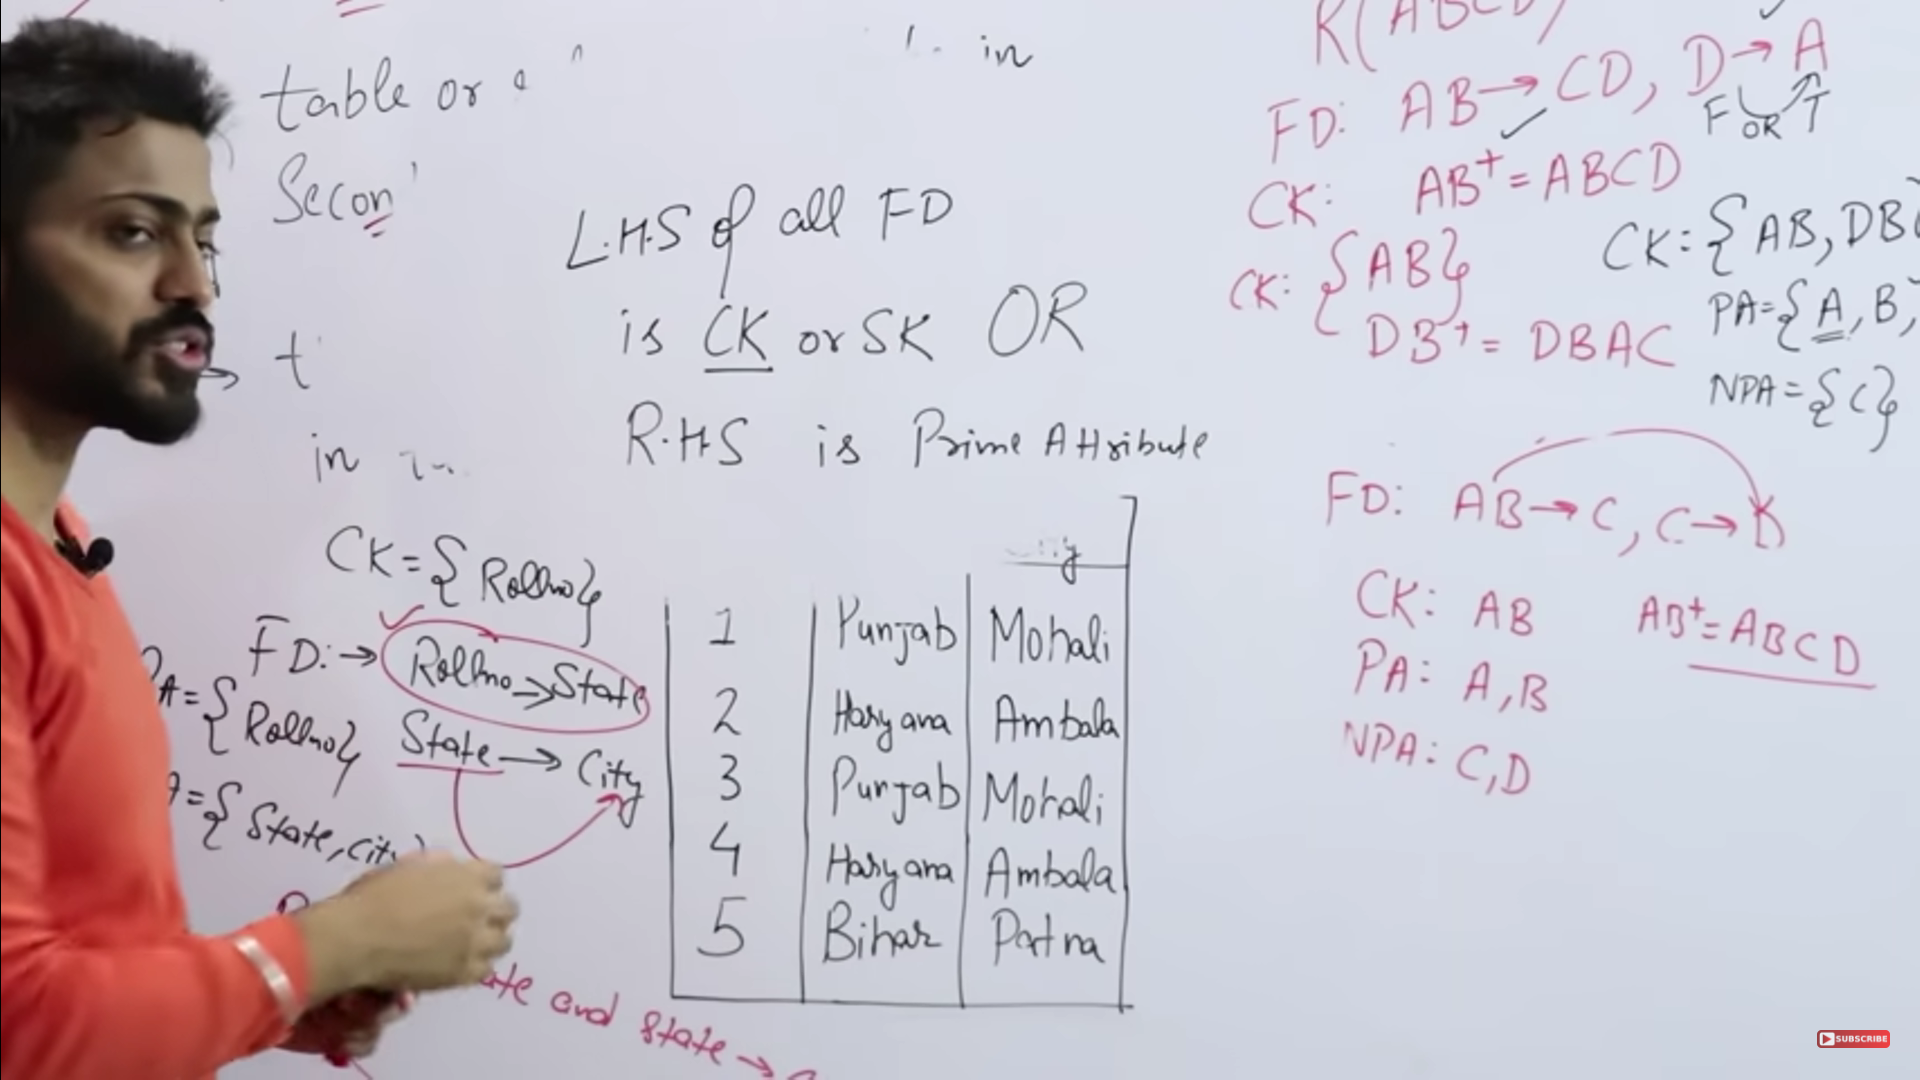 table or
in
Secon
L.H.S of all FD
is CK or SK OR
R.H.S is Prime Attribute
t
in
CK = { Rollno}
FD: → Rollno → State
State → City
= { Rollno}
= { State, City
1 Punjab Mohali
2 Haryana Ambala
3 Punjab Mohali
4 Haryana Ambala
5 Bihar Patna
ate and state →
R(ABCD)
FD: AB → CD, D → A
F OR T
CK: AB+ = ABCD
CK: {AB}
DB+ = DBAC
CK: { AB, DB
PA = { A, B,
NPA = { C}
FD: AB → C, C → D
CK: AB AB+ = ABCD
PA: A, B
NPA: C, D
SUBSCRIBE